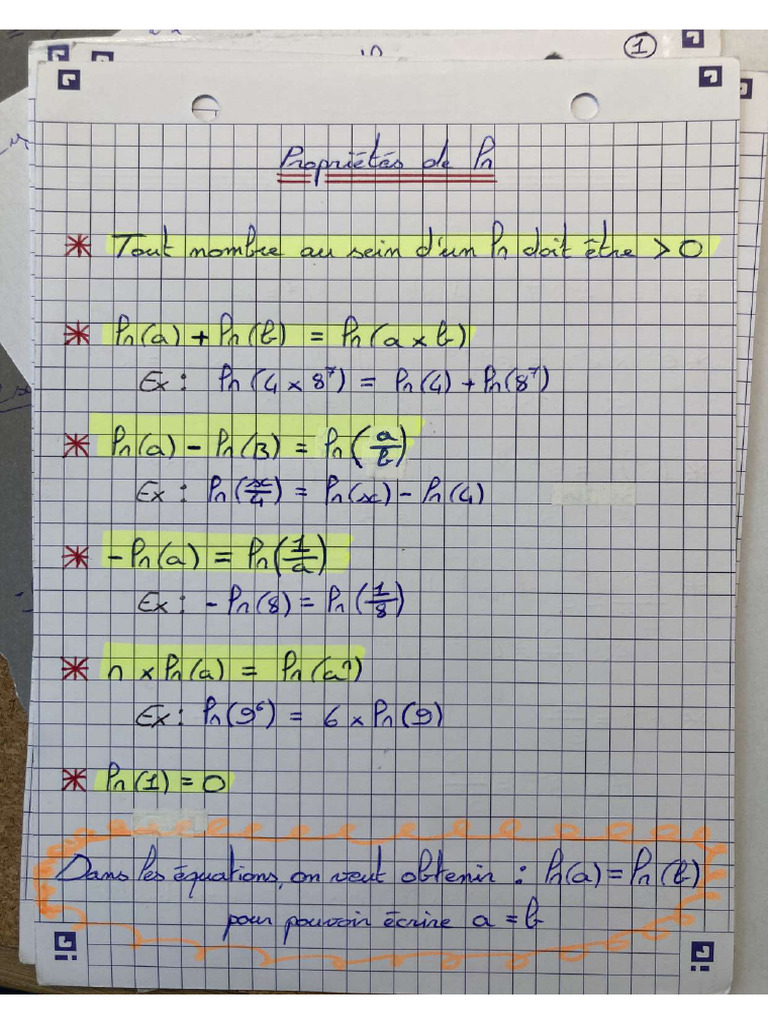 1
Propriétés de ln
* Tout nombre au sein d'un ln doit être > 0
* ln(a) + ln(b) = ln(a × b)
Ex : ln(4 × 8⁷) = ln(4) + ln(8⁷)
* ln(a) - ln(B) = ln(a/b)
Ex : ln(x/4) = ln(x) - ln(4)
* -ln(a) = ln(1/a)
Ex : -ln(8) = ln(1/8)
* n × ln(a) = ln(aⁿ)
Ex : ln(9⁶) = 6 × ln(9)
* ln(1) = 0
Dans les équations, on veut obtenir : ln(a) = ln(b)
pour pouvoir écrire a = b